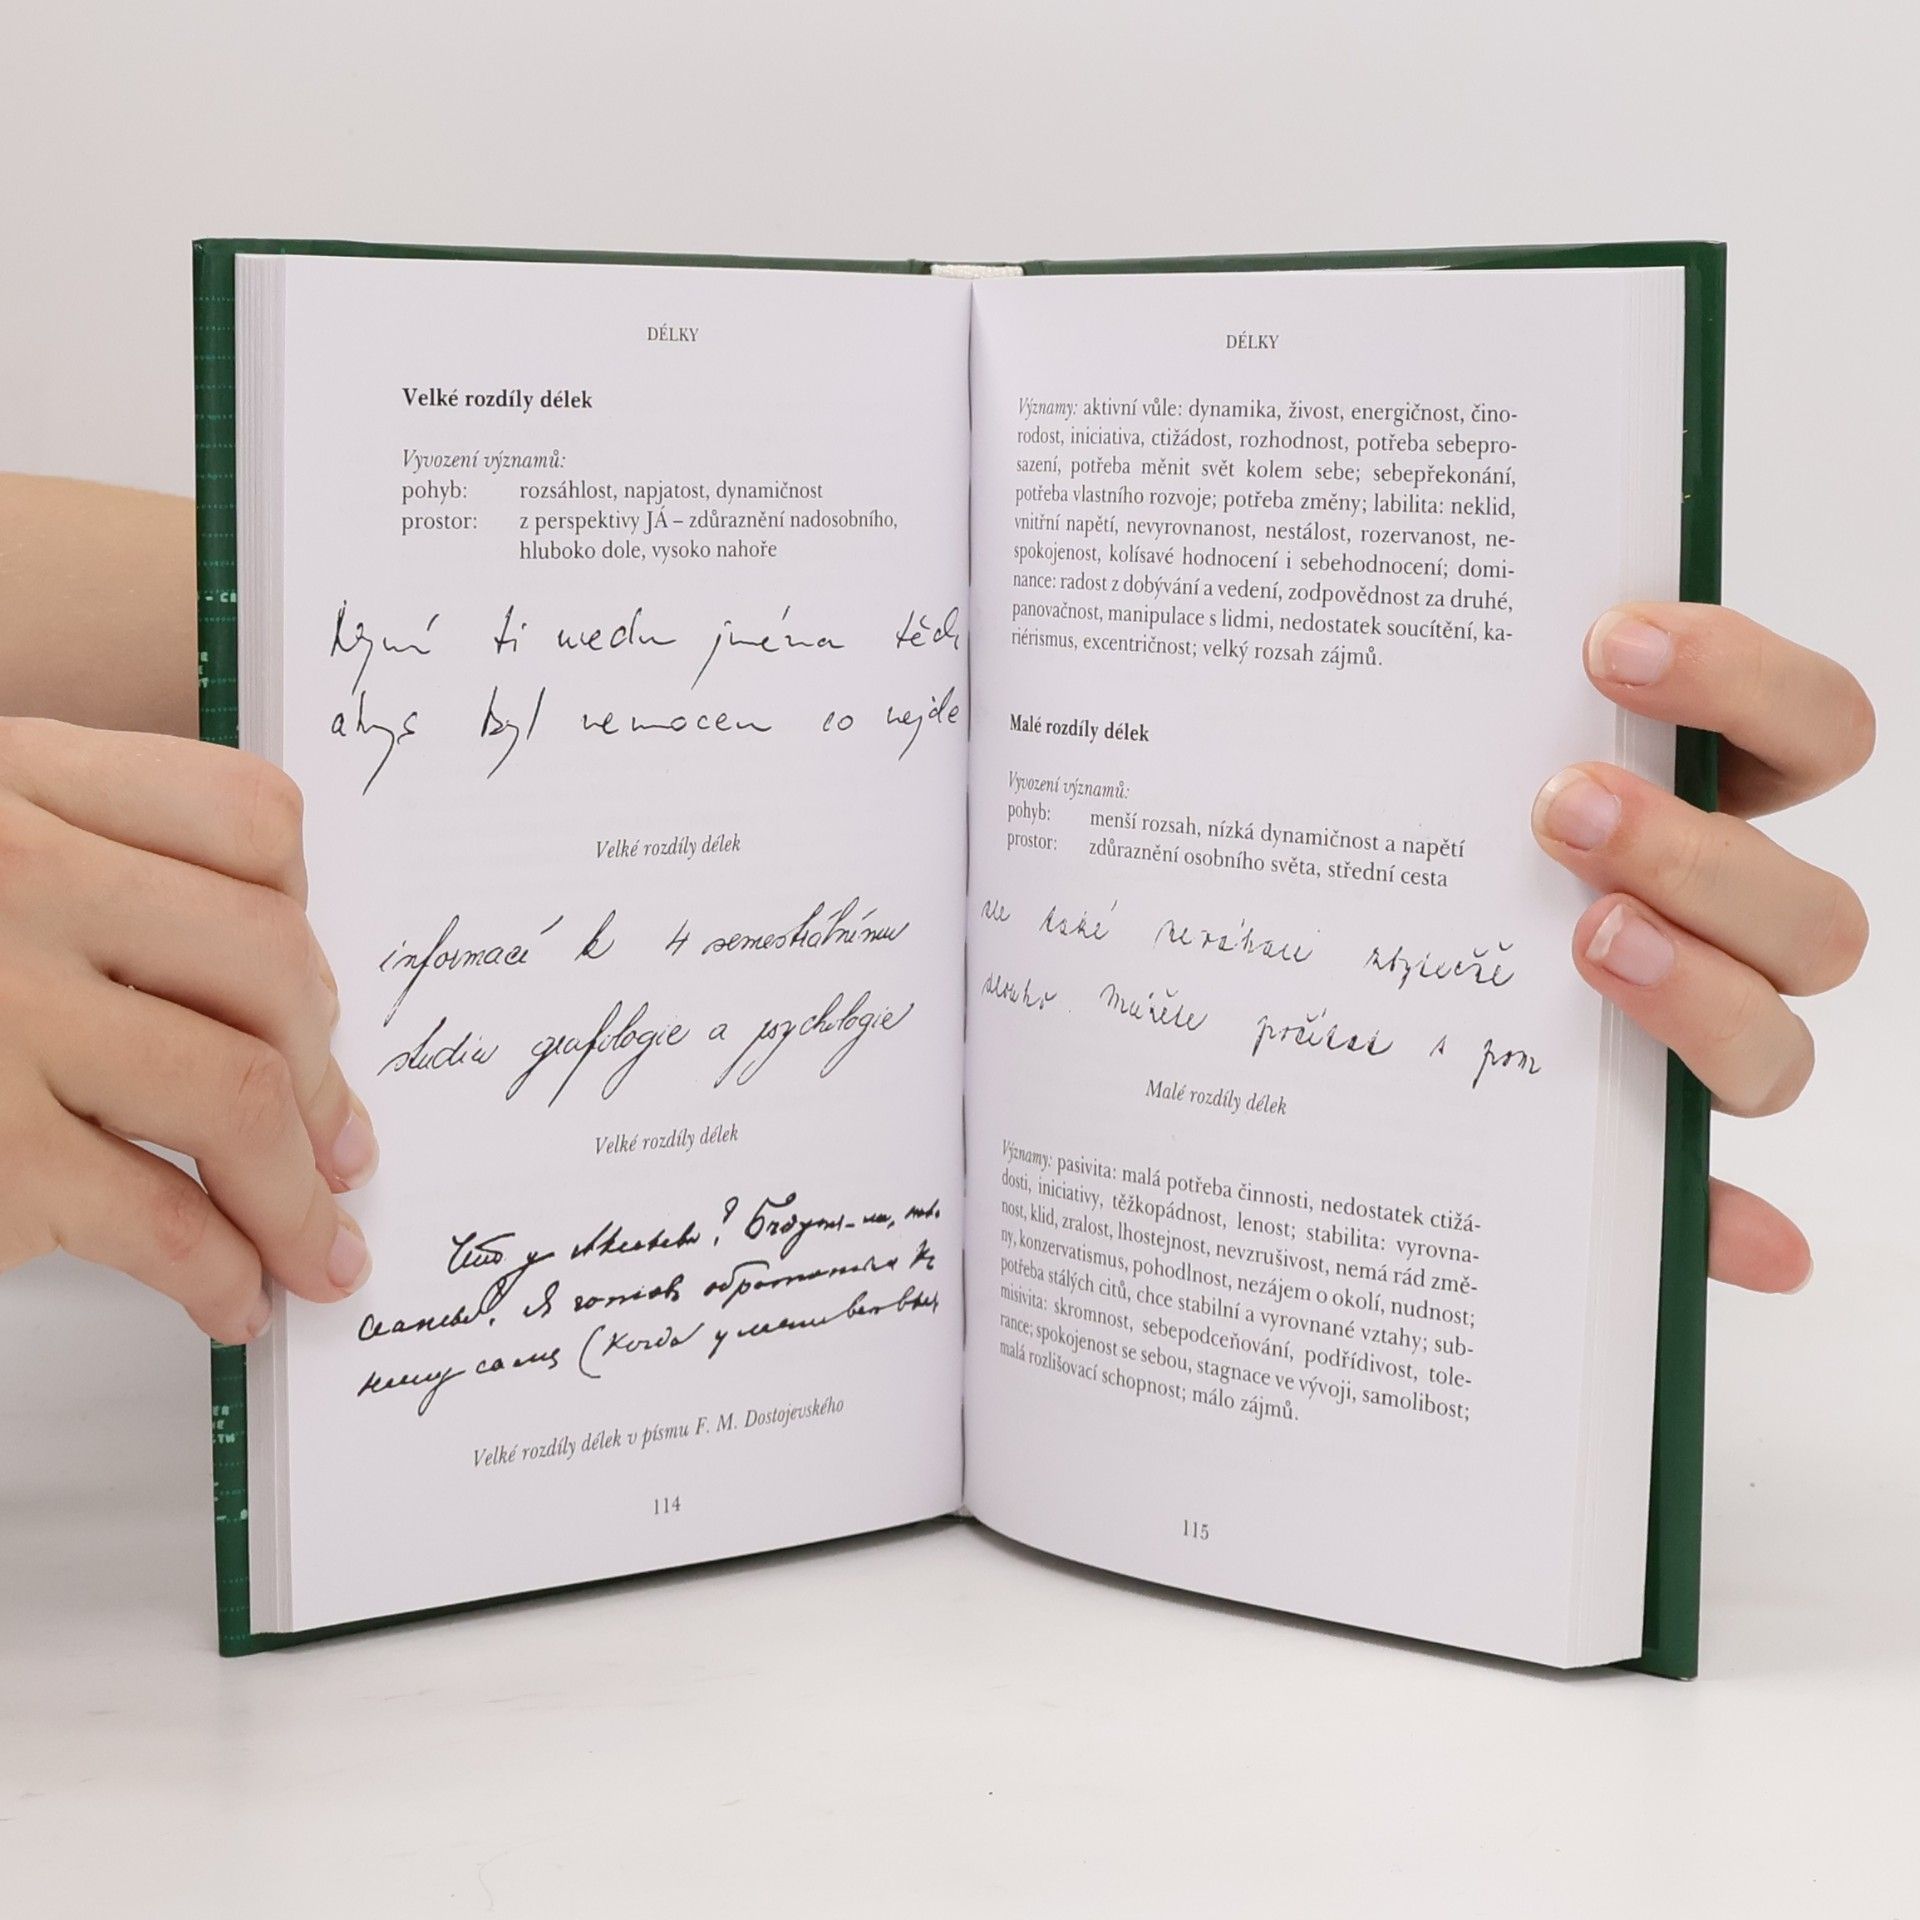 DÉLKY
Velké rozdíly délek
Vyvození významů:
pohyb: rozsáhlost, napjatost, dynamičnost
prostor: z perspektivy JÁ – zdůraznění nadosobního,
hluboko dole, vysoko nahoře
ti vedu jména těch
abys byl nemocen co nejde
Velké rozdíly délek
informací k 4 semestrálnímu
studiu grafologie a psychologie
Velké rozdíly délek
Velké rozdíly délek v písmu F. M. Dostojevského
114
DÉLKY
Významy: aktivní vůle: dynamika, živost, energičnost, čino-
rodost, iniciativa, ctižádost, rozhodnost, potřeba sebepro-
sazení, potřeba měnit svět kolem sebe; sebepřekonání,
potřeba vlastního rozvoje; potřeba změny; labilita: neklid,
vnitřní napětí, nevyrovnanost, nestálost, rozervanost, ne-
spokojenost, kolísavé hodnocení i sebehodnocení; domi-
nance: radost z dobývání a vedení, zodpovědnost za druhé,
panovačnost, manipulace s lidmi, nedostatek soucítění, ka-
riérismus, excentričnost; velký rozsah zájmů.
Malé rozdíly délek
Vyvození významů:
pohyb: menší rozsah, nízká dynamičnost a napětí
prostor: zdůraznění osobního světa, střední cesta
ale také neváhali zbytečně
dlouho. Můžete počítat s pom
Malé rozdíly délek
Významy: pasivita: malá potřeba činnosti, nedostatek ctižá-
dosti, iniciativy, těžkopádnost, lenost; stabilita: vyrovna-
nost, klid, zralost, lhostejnost, nevzrušivost, nemá rád změ-
ny, konzervatismus, pohodlnost, nezájem o okolí, nudnost;
potřeba stálých citů, chce stabilní a vyrovnané vztahy; sub-
misivita: skromnost, sebepodceňování, podřídivost, tole-
rance; spokojenost se sebou, stagnace ve vývoji, samolibost;
malá rozlišovací schopnost; málo zájmů.
115